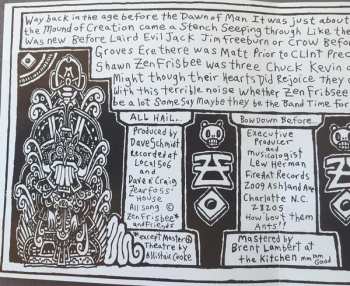 Way back in the age before the Dawn of Man It was just about
the Mound of Creation came a Stench Seeping through Like the
Was new Before Laird Evil Jack Jim freeborn or Crow Before
Groves Ere there was Matt Prior to Clint Prec
Shawn Zen Frisbee was three Chuck Kevin a
Might though their Hearts Did Rejoice they c
With this terrible noise Whether Zen Frisbee
be a lot Some Say Maybe they be the Band Time for
ALL HAIL...
Produced by
Dave Schmidt
Recorded at
Local 506
and
Dave & Craig
Zearfoss'
House
All song ©
Zen Frisbee*
and Friends
*except Master©
Theatre by
Allistair Cooke
Bow Down Before...
Executive
Producer
and
musicologist
Lew Herman
FireAnt Records
2009 Ashland Ave
Charlotte N.C.
28205
How bout them
Ants!!
Mastered by
Brent Lambert at
the Kitchen mmmm Good